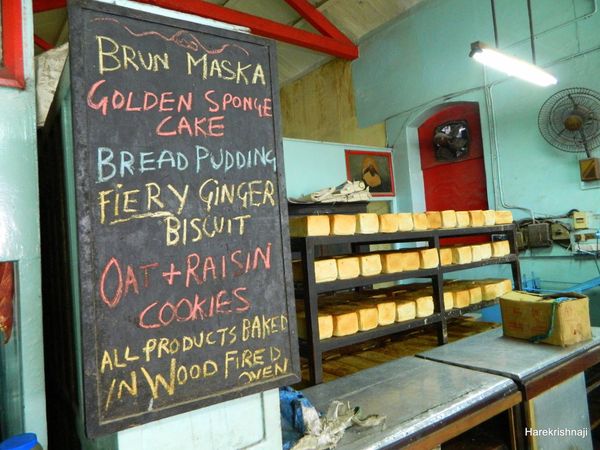 BRUN MASKA
GOLDEN SPONGE
CAKE
BREAD PUDDING
FIERY GINGER
BISCUIT
OAT + RAISIN
COOKIES
ALL PRODUCTS BAKED
IN WOOD FIRED
OVEN
Harekrishnaji